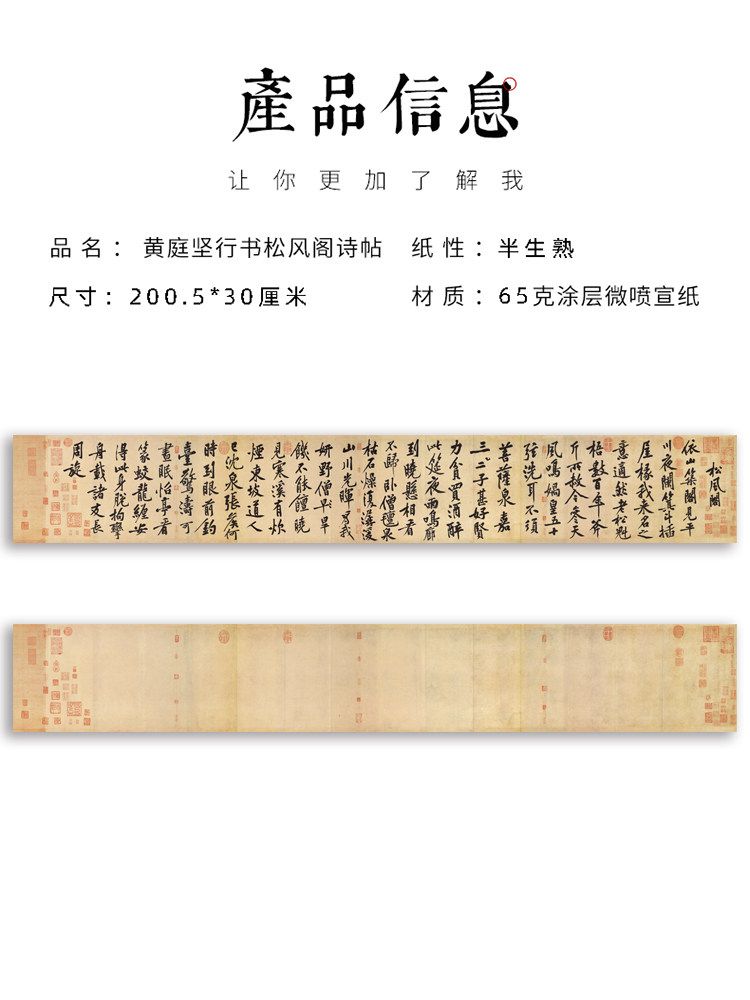 產品信息
让你更加了解我
品名：黄庭坚行书松风阁诗帖
纸性：半生熟
尺寸：200.5*30厘米
材质：65克涂层微喷宣纸
松風閣
依山築閣見平
川夜闌箕斗插
屋椽我來名之
意適然老松魁
梧數百年斧
斤所赦今參天
風鳴媧皇五十
弦洗耳不須
菩薩泉嘉
三二子甚好賢
力貧買酒醉
此筵夜雨鳴廊
到曉懸相看
不歸臥僧氈泉
枯石燥復潺湲
山川光暉為我
妍野僧旱
饑不能饘曉
見寒溪有炊
煙東坡道人
已沈泉張侯何
時到眼前釣
臺驚濤可
晝眠怡亭看
篆蛟龍纏安
得此身脫拘攣
舟載諸友長
周旋